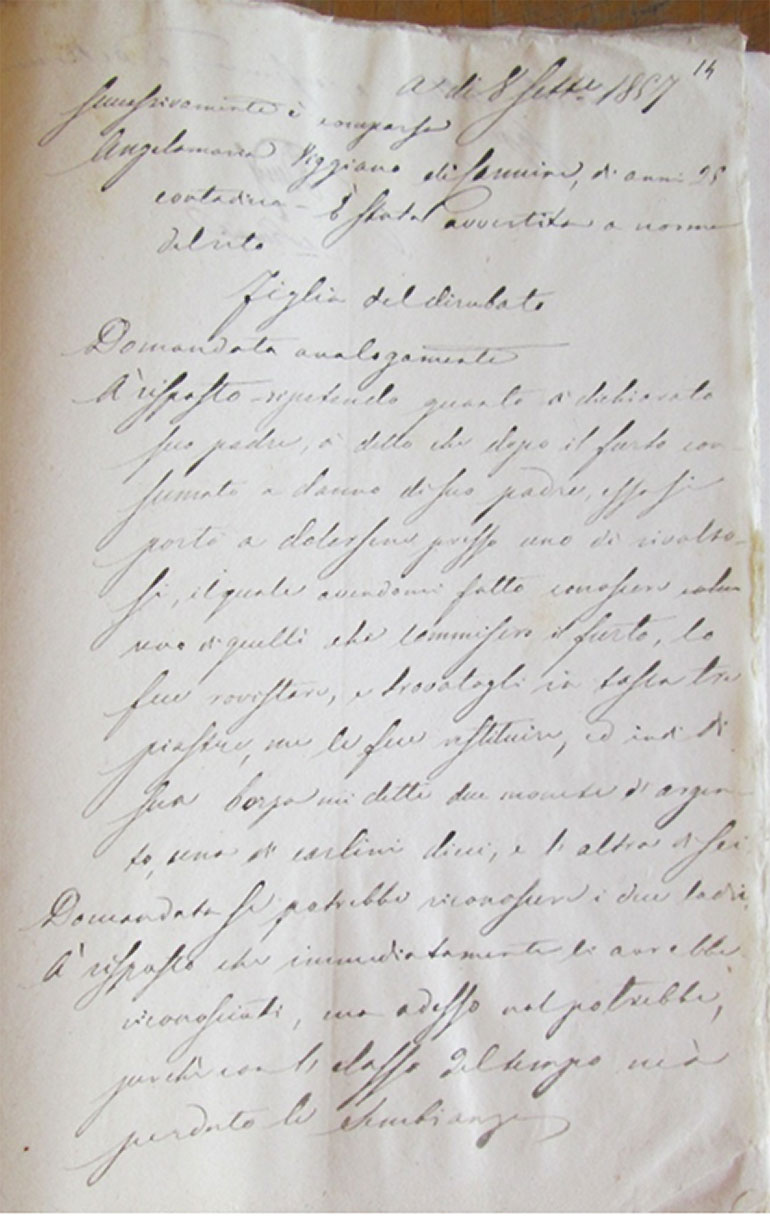 14
A dì 8 Sett.e 1857
Successivamente è comparsa
Angelamaria Viggiano di Sannina, di anni 25
contadina - È stata avvertita a norma
del rito
Figlia del dirubato
Domandata analogamente
À risposto - ripetendo quanto à dichiarato
suo padre, à detto che dopo il furto con-
sumato a danno di suo padre, essa si
portò a dolersene presso uno di rivolto-
si, il quale avendomi fatto conoscere
uno di quelli che commisero il furto, lo
fece rovistare, e trovatogli in tasca tre
piastre, me le fece restituire, ed indi di
sua borsa mi dette due monete d'argen-
to, una di carlini dieci, e l'altra di sei
Domandata se potrebbe riconoscere i due ladri,
À risposto che immediatamente li avrebbe
riconosciuti, ma adesso nol potrebbe,
perchè con l'elasso del tempo ne à
perduto le sembianze